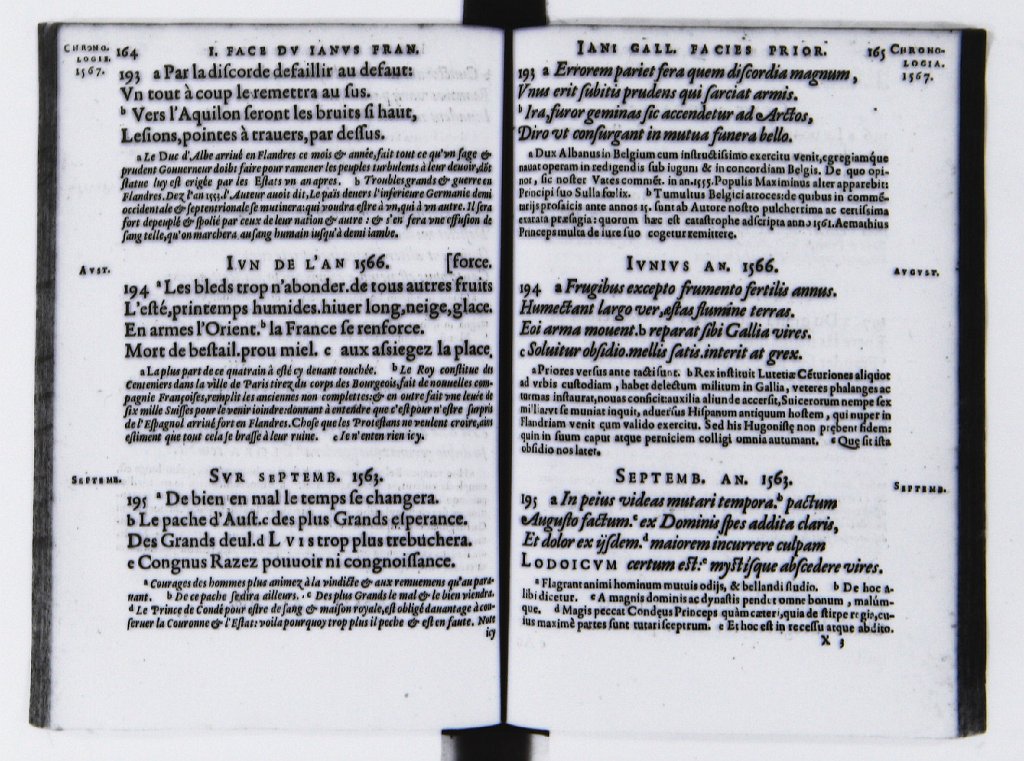 CHRONO-
LOGIE.
1567.
164 I. FACE DV IANVS FRAN.
193 a Par la discorde defaillir au defaut:
Vn tout à coup le remettra au sus.
b Vers l'Aquilon seront les bruits si haut,
Lesions, pointes à trauers, par dessus.
a Le Duc d'Albe arriué en Flandres ce mois & année, fait tout ce qu'vn sage &
prudent Gouuerneur doibt faire pour ramener les peuples turbulents à leur deuoir, dōt
statue luy est erigée par les Estats vn an apres. b Troubles grands & guerre en
Flandres. Dez l'an 1553. l'Auteur auoit dit, Le païs deuers l'inferieure Germanie demi
occidentale & septentrionale se mutinera: qui voudra estre à vn, qui à vn autre. Il sera
fort depeuplé & spolié par ceux de leur nation & autre: & s'en fera vne effusion de
sang telle, qu'on marchera au sang humain iusqu'à demi iambe.
AVST.
IVN DE L'AN 1566. [force.
194 a Les bleds trop n'abonder. de tous autres fruits
L'esté, printemps humides. hiuer long, neige, glace.
En armes l'Orient. b la France se renforce.
Mort de bestail. prou miel. c aux assiegez la place,
a La plus part de ce quatrain a esté cy deuant touchée. b Le Roy constitue des
Centeniers dans la ville de Paris tirez du corps des Bourgeois, fait de nouuelles com-
pagnie Françoises, remplit les anciennes non complettes: & en outre fait vne leuée de
six mille Suisses pour le venir ioindre: donnant à entendre que c'est pour n'estre surpris
de l'Espagnol arriué fort en Flandres. Chose que les Protestans ne veulent croire, ains
estiment que tout cela se brasse à leur ruine. c Ie n'enten rien icy.
SEPTEMB.
SVR SEPTEMB. 1563.
195 a De bien en mal le temps se changera.
b Le pache d'Aust. c des plus Grands esperance.
Des Grands deul. d LVIS trop plus trebuchera.
e Congnus Razez pouuoir ni congnoissance.
a Courages des hommes plus animez à la vindicte & aux remuemens qu'au para-
nant. b De ce pache se dira ailleurs. c Des plus Grands le mal & le bien viendra.
d Le Prince de Condé pour estre de sang & maison royale, est obligé dauantage à con-
seruer la Couronne & l'Estat: voila pourquoy trop plus il peche & est en faute. Nott
icy
IANI GALL. FACIES PRIOR. 165
CHRONO-
LOGIA.
1567.
193 a Errorem pariet fera quem discordia magnum,
Vnus erit subitis prudens qui sarciat armis.
b Ira, furor geminas sic accendetur ad Arctos,
Diro vt consurgant in mutua funera bello.
a Dux Albanus in Belgium cum instructissimo exercitu venit, egregiamque
nauat operam in redigendis sub iugum & in concordiam Belgis. De quo opi-
nor, sic noster Vates comment. in an. 1555. Populis Maximinus alter apparebit:
Principi suo Sulla fœlix. b Tumultus Belgici atroces: de quibus in commē-
tarijs prosaicis ante annos 15. sunt ab Autore nostro pulcherrima ac certissima
exarata præsagia: quorum hæc est catastrophe adscripta anno 1561. Aemathius
Princeps multa de iure suo cogetur remittere.
AVGVST.
IVNIVS AN. 1566.
194 a Frugibus excepto frumento fertilis annus.
Humectant largo ver, æstas flumine terras.
Eoi arma mouent. b reparat sibi Gallia vires.
c Soluitur obsidio. mellis satis. interit at grex.
a Priores versus ante tacti sunt. b Rex instituit Lutetiæ Cēturiones aliquot
ad vrbis custodiam, habet delectum militum in Gallia, veteres phalanges ac
turmas instaurat, nouas conscit: auxilia aliunde accersit, Suicerorum nempe sex
millia: vt se muniat inquit, aduersus Hispanum antiquum hostem, qui nuper in
Flandriam venit cum valido exercitu. Sed his Hugonistę non prębent fidem:
quin in suum caput atque perniciem colligi omnia autumant. c Quę sit ista
obsidio nos latet.
SEPTEMB.
SEPTEMB. AN. 1563.
195 a In peius videas mutari tempora. b pactum
Augusto factum. c ex Dominis spes addita claris,
Et dolor ex ijsdem. d maiorem incurrere culpam
LODOICVM certum est: e mystisque abscedere vires.
a Flagrant animi hominum mutuis odijs, & bellandi studio. b De hoc a-
libi dicetur. c A magnis dominis ac dynastis pendet omne bonum, malúm-
que. d Magis peccat Condęus Princeps quàm cæteri, quia de stirpe regis, cu-
ius maximè partes sunt tutari sceptrum. e Et hoc est in recessu atque abdito.
X 3